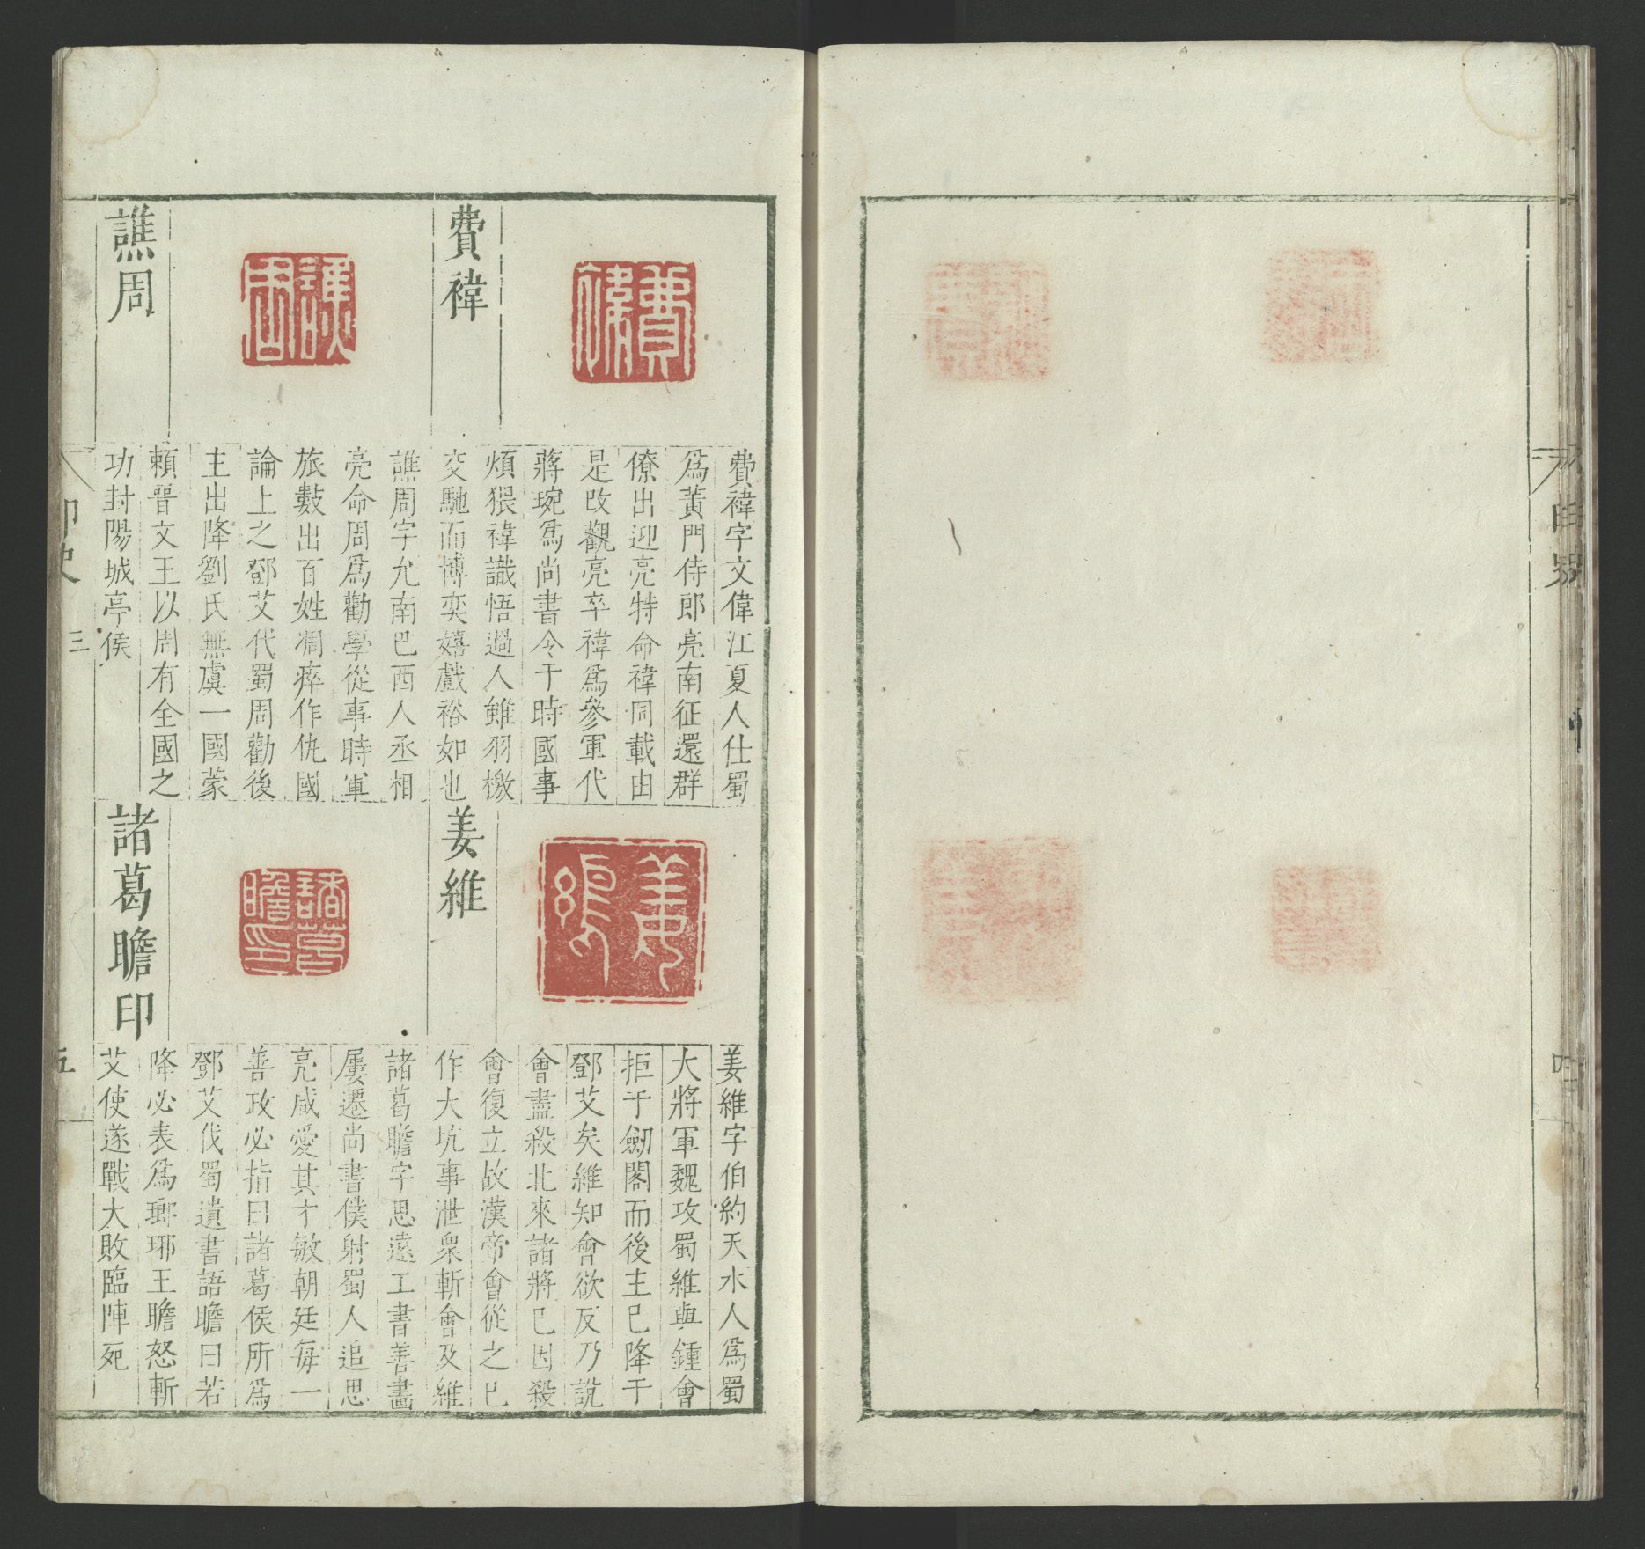 費禕
費禕
費禕字文偉江夏人仕蜀
爲黃門侍郎亮南征還群
僚出迎亮特命禕同載由
是改觀亮卒禕爲參軍代
蔣琬爲尚書令于時國事
煩猥禕識悟過人雖羽檄
交馳而博奕嬉戲裕如也
譙周
譙周
譙周字允南巴西人丞相
亮命周爲勸學從事時軍
旅數出百姓凋瘁作仇國
論上之鄧艾代蜀周勸後
主出降劉氏無虞一國蒙
賴晉文王以周有全國之
功封陽城亭侯
姜維
姜維
姜維字伯約天水人爲蜀
大將軍魏攻蜀維與鍾會
拒于劒閣而後主已降于
鄧艾矣維知會欲反乃說
會盡殺北來諸將已因殺
會復立故漢帝會從之已
作大坑事泄衆斬會及維
諸葛瞻印
諸葛瞻印
諸葛瞻字思遠工書善畵
屢遷尚書僕射蜀人追思
亮咸愛其才敏朝廷每一
善政必指曰諸葛侯所爲
鄧艾伐蜀遺書語瞻曰若
降必表爲瑯琊王瞻怒斬
艾使遂戰大敗臨陣死
印史
三
五